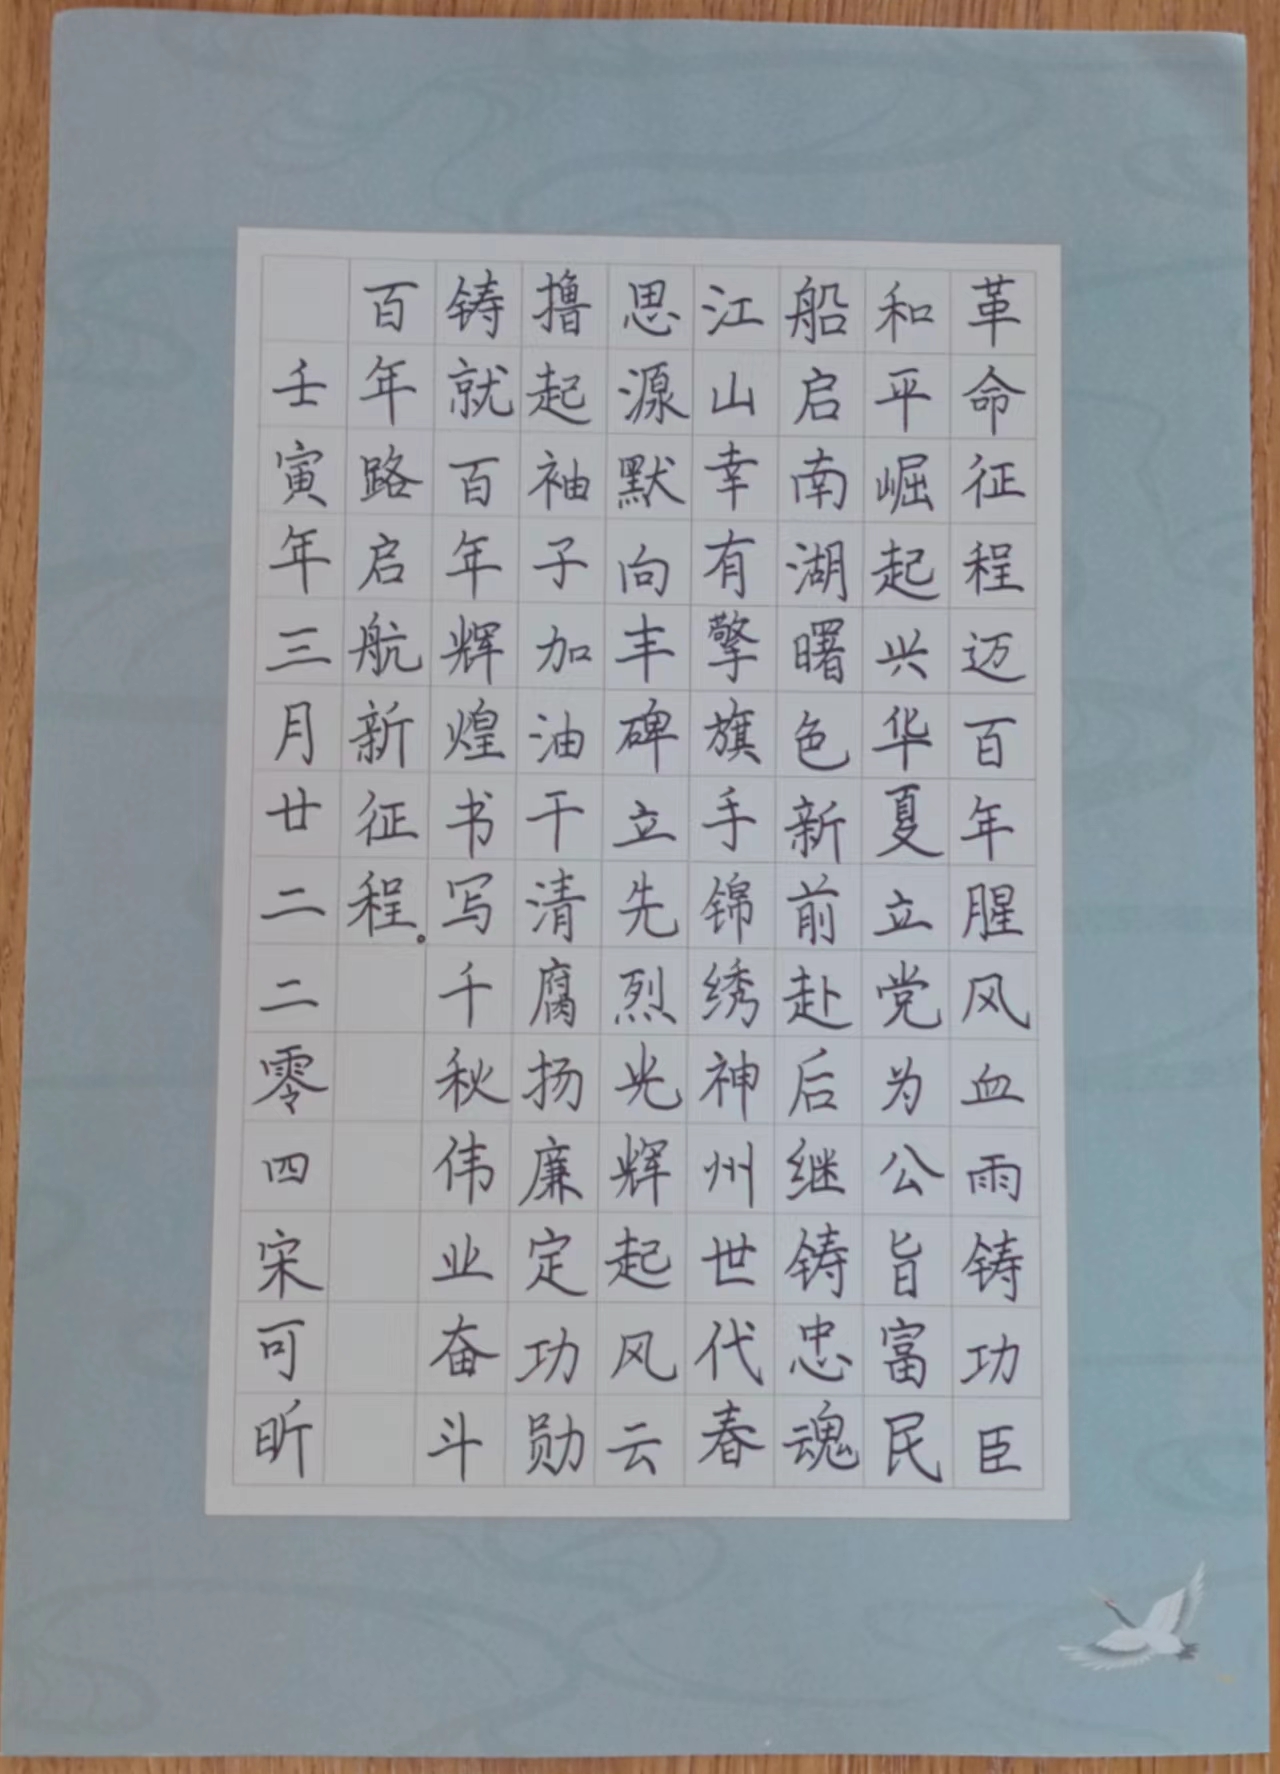 革命征程迈百年腥风血雨铸功臣
和平崛起兴华夏立党为公旨富民
船启南湖曙色新前赴后继铸忠魂
江山幸有擎旗手锦绣神州世代春
思源默向丰碑立先烈光辉起风云
撸起袖子加油干清腐扬廉定功勋
铸就百年辉煌书写千秋伟业奋斗
百年路启航新征程。
壬寅年三月廿二二零四宋可昕